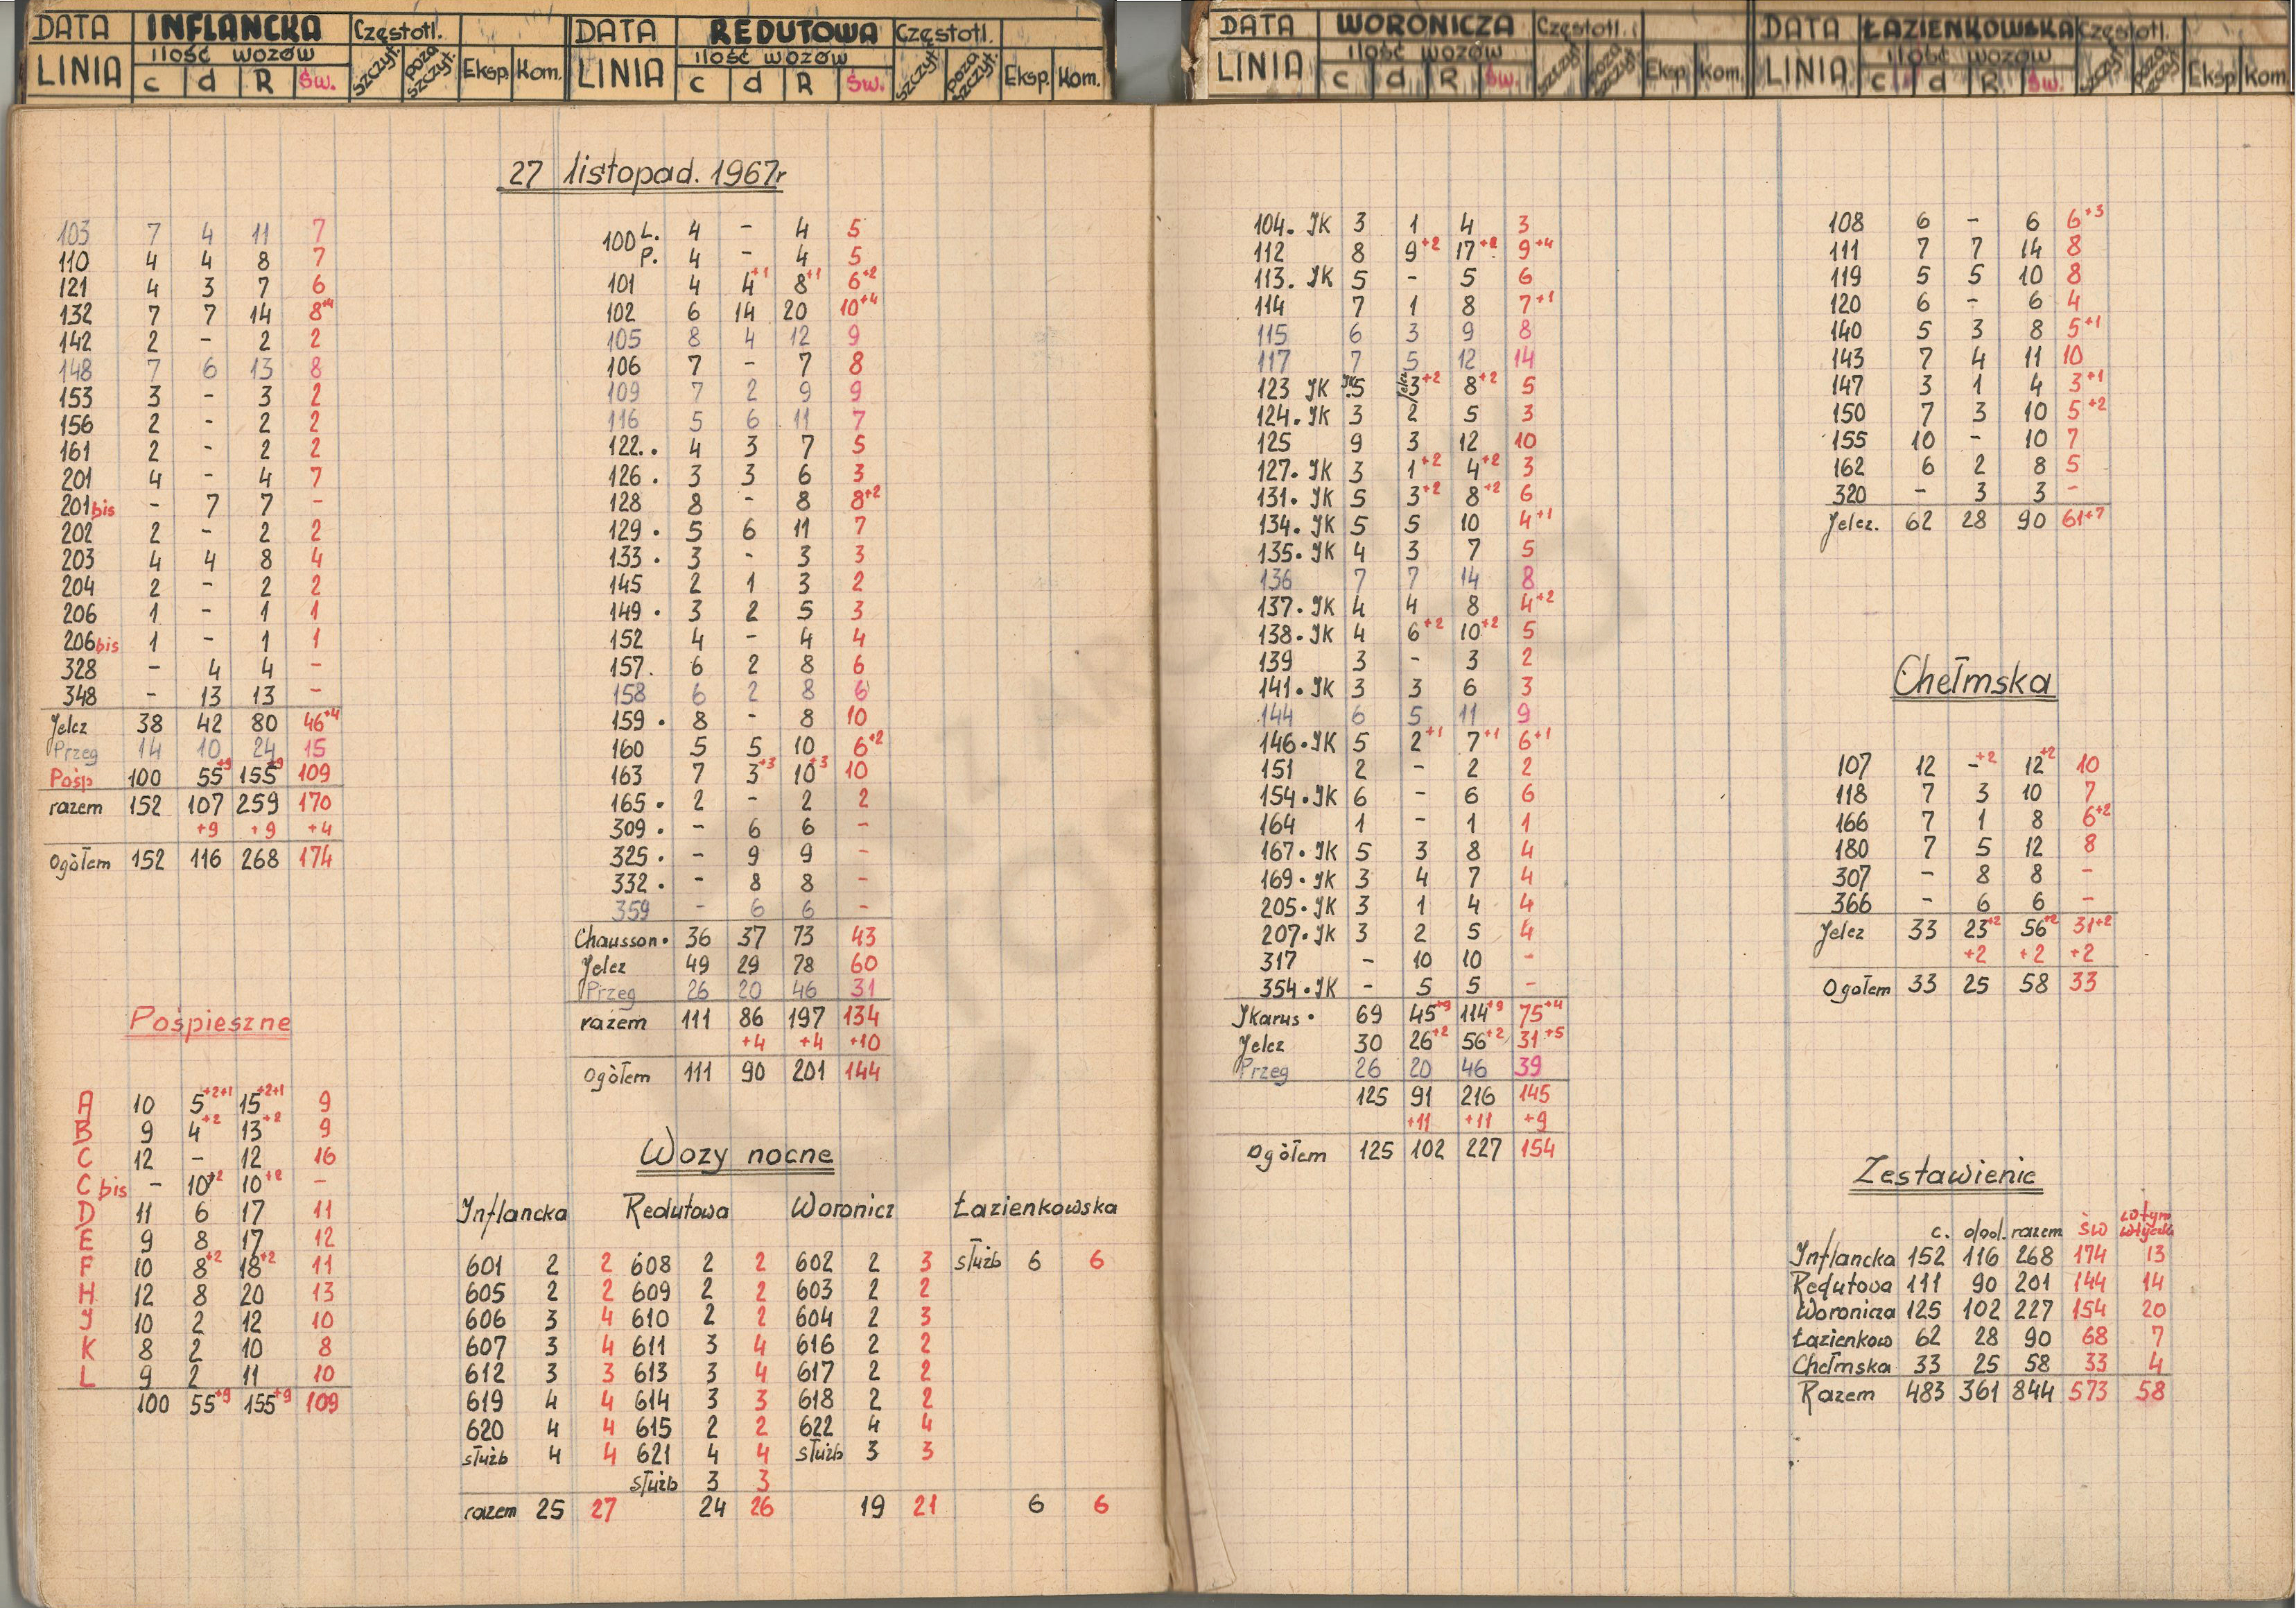 DATA INFLANCKA Częstotl.
LINIA ilość wozów c d R Św. szczyt. poza szczyt. Eksp. Kom.
DATA REDUTOWA Częstotl.
LINIA ilość wozów c d R Św. szczyt. poza szczyt. Eksp. Kom.
DATA WORONICZA Częstotl.
LINIA ilość wozów c d R Św. szczyt. poza szczyt. Eksp. Kom.
DATA ŁAZIENKOWSKA Częstotl.
LINIA ilość wozów c d R Św. szczyt poza szczyt. Eksp Kom.
27 listopad. 1967r
103 7 4 11 7
110 4 4 8 7
121 4 3 7 6
132 7 7 14 8+4
142 2 - 2 2
148 7 6 13 8
153 3 - 3 2
156 2 - 2 2
161 2 - 2 2
201 4 - 4 7
201bis - 7 7 -
202 2 - 2 2
203 4 4 8 4
204 2 - 2 2
206 1 - 1 1
206bis 1 - 1 1
328 - 4 4 -
348 - 13 13 -
Jelcz 38 42 80 46+4
Przeg 14 10 24 15
Pośp 100 55+9 155+9 109
razem 152 107 259 170
+9 +9 +4
Ogółem 152 116 268 174
Pośpieszne
A 10 5+2+1 15+2+1 9
B 9 4+2 13+2 9
C 12 - 12 16
C bis - 10+2 10+2 -
D 11 6 17 11
E 9 8 17 12
F 10 8+2 18+2 11
H 12 8 20 13
J 10 2 12 10
K 8 2 10 8
L 9 2 11 10
100 55+9 155+9 109
100 L. 4 - 4 5
P. 4 - 4 5
101 4 4+1 8+1 6+2
102 6 14 20 10+4
105 8 4 12 9
106 7 - 7 8
109 7 2 9 9
116 5 6 11 7
122. . 4 3 7 5
126 . 3 3 6 3
128 8 - 8 8+2
129 . 5 6 11 7
133 . 3 - 3 3
145 2 1 3 2
149 . 3 2 5 3
152 4 - 4 4
157. 6 2 8 6
158 6 2 8 6
159 . 8 - 8 10
160 5 5 10 6+2
163 7 3+3 10+3 10
165 . 2 - 2 2
309 . - 6 6 -
325 . - 9 9 -
332 . - 8 8 -
359 - 6 6 -
Chausson. 36 37 73 43
Jelcz 49 29 78 60
Przeg 26 20 46 31
razem 111 86 197 134
+4 +4 +10
Ogółem 111 90 201 144
Wozy nocne
Inflancka Redutowa Woronicz Łazienkowska
601 2 2 608 2 2 602 2 3 służb 6 6
605 2 2 609 2 2 603 2 2
606 3 4 610 2 2 604 2 3
607 3 4 611 3 4 616 2 2
612 3 3 613 3 4 617 2 2
619 4 4 614 3 3 618 2 2
620 4 4 615 2 2 622 4 4
służb 4 4 621 4 4 służb 3 3
służb 3 3
razem 25 27 24 26 19 21 6 6
104. JK 3 1 4 3
112 8 9+2 17+2 9+4
113. JK 5 - 5 6
114 7 1 8 7+1
115 6 3 9 8
117 7 5 12 14
123 JK JK 5 Jelcz 3+2 8+2 5
124. JK 3 2 5 3
125 9 3 12 10
127. JK 3 1+2 4+2 3
131. JK 5 3+2 8+2 6
134. JK 5 5 10 4+1
135. JK 4 3 7 5
136 7 7 14 8
137. JK 4 4 8 4+2
138. JK 4 6+2 10+2 5
139 3 - 3 2
141. JK 3 3 6 3
144 6 5 11 9
146. JK 5 2+1 7+1 6+1
151 2 - 2 2
154. JK 6 - 6 6
164 1 - 1 1
167. JK 5 3 8 4
169. JK 3 4 7 4
205. JK 3 1 4 4
207. JK 3 2 5 4
317 - 10 10 -
354. JK - 5 5 -
Jkarus . 69 45+9 114+9 75+4
Jelcz 30 26+2 56+2 31+5
Przeg 26 20 46 39
125 91 216 145
+11 +11 +9
Ogółem 125 102 227 154
108 6 - 6 6+3
111 7 7 14 8
119 5 5 10 8
120 6 - 6 4
140 5 3 8 5+1
143 7 4 11 10
147 3 1 4 3+1
150 7 3 10 5+2
155 10 - 10 7
162 6 2 8 5
320 - 3 3 -
Jelcz. 62 28 90 61+7
Chełmska
107 12 -+2 12+2 10
118 7 3 10 7
166 7 1 8 6+2
180 7 5 12 8
307 - 8 8 -
366 - 6 6 -
Jelcz 33 23+2 56+2 31+2
+2 +2 +2
Ogołem 33 25 58 33
Zestawienie
c. dod. razem św w tym wtyczki
Inflancka 152 116 268 174 13
Redutowa 111 90 201 144 14
Woronicza 125 102 227 154 20
Łazienkow 62 28 90 68 7
Chełmska 33 25 58 33 4
Razem 483 361 844 573 58